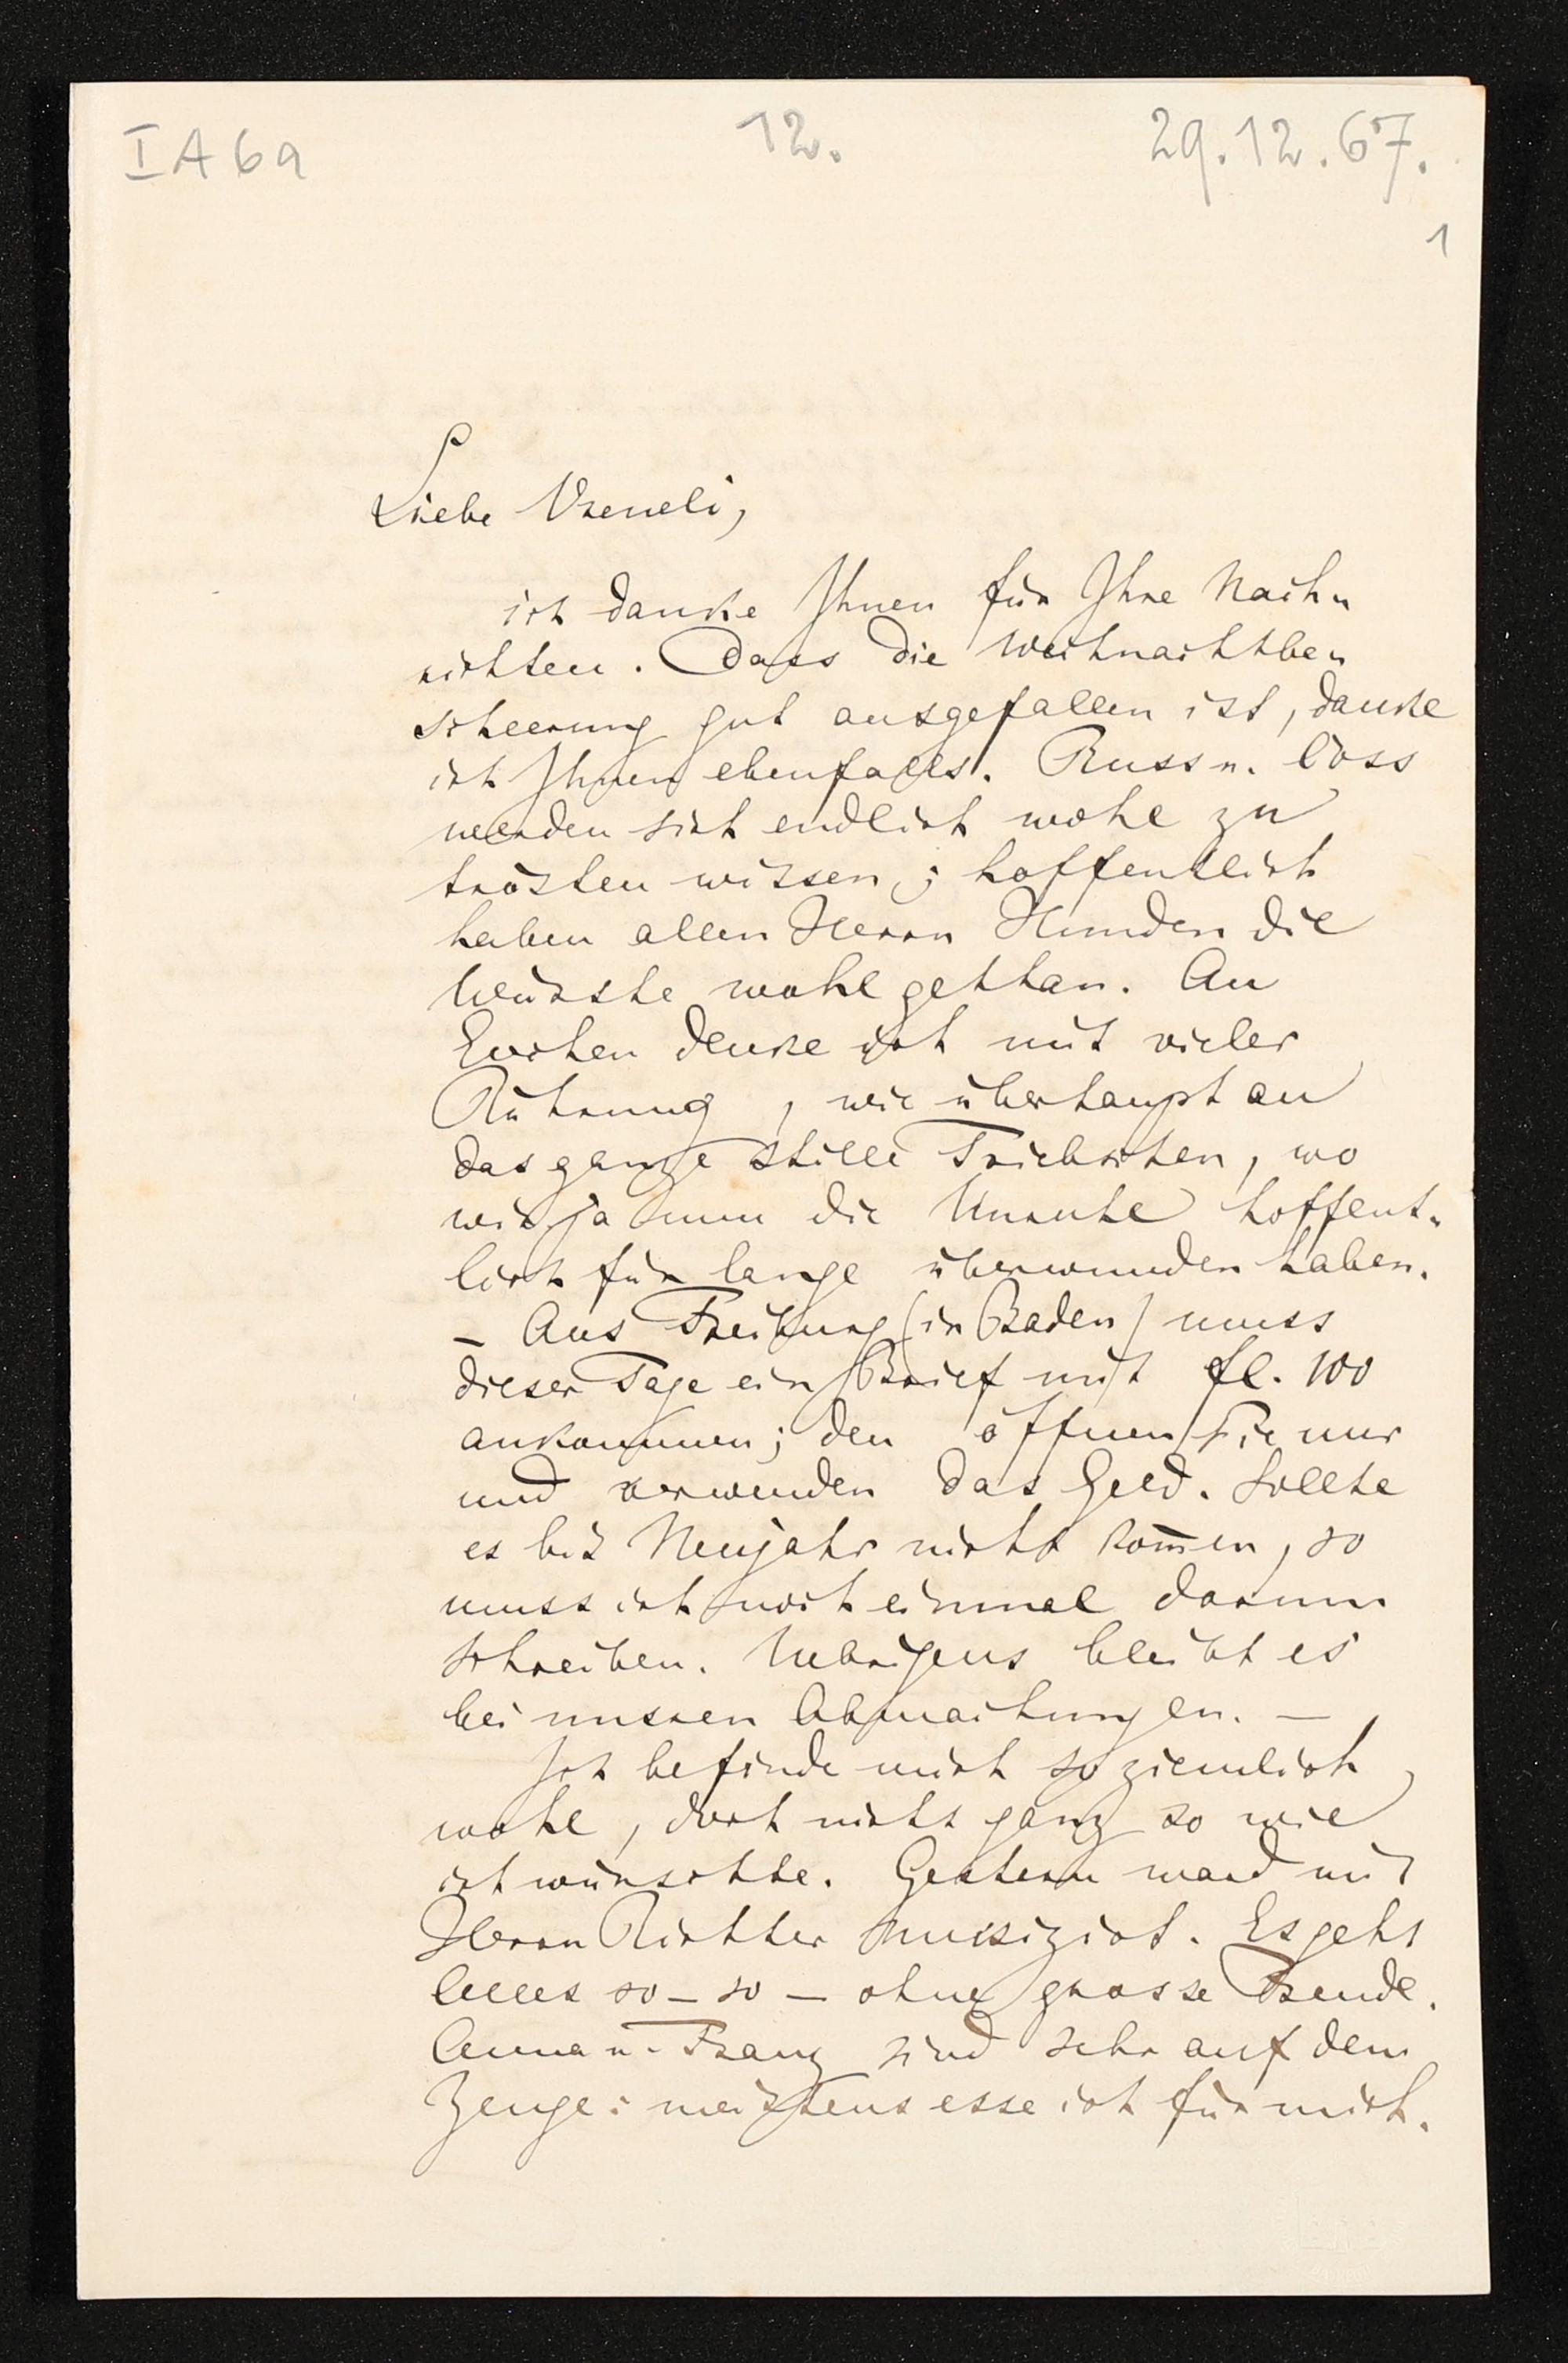 I A 6a
12.
29.12.67.
1
Liebe Vreneli,
ich danke Ihnen für Ihre Nach-
richten. Dass die Weihnachtbe-
scheerung gut ausgefallen ist, danke
ich Ihnen ebenfalls. Russ u. Coss
werden sich endlich wohl zu
trösten wissen; hoffentlich
haben allen Herrn Hunden die
Würste wohl gethan. An
Evchen denke ich mit vieler
Rührung, wie überhaupt an
das ganze stille Triebschen, wo
wir ja nun die Unruhe hoffent-
lich für lange überwunden haben.
– Aus Freiburg (in Baden) muss
dieser Tage ein Brief mit fl. 100
ankommen; den öffnen Sie nur
und verwenden das Geld. Sollte
es bis Neujahr nicht kom̄en, so
muss ich noch einmal darum
schreiben. Uebrigens bleibt es
bei unsren Abmachungen. —
Ich befinde mich so ziemlich
wohl, doch nicht ganz so wie
ich wünschte. Gestern ward mit
Herrn Richter musizirt. Es geht
Alles so – so – ohne grosse Freude.
Anna u. Franz sind sehr auf dem
Zeuge: meistens esse ich für mich.